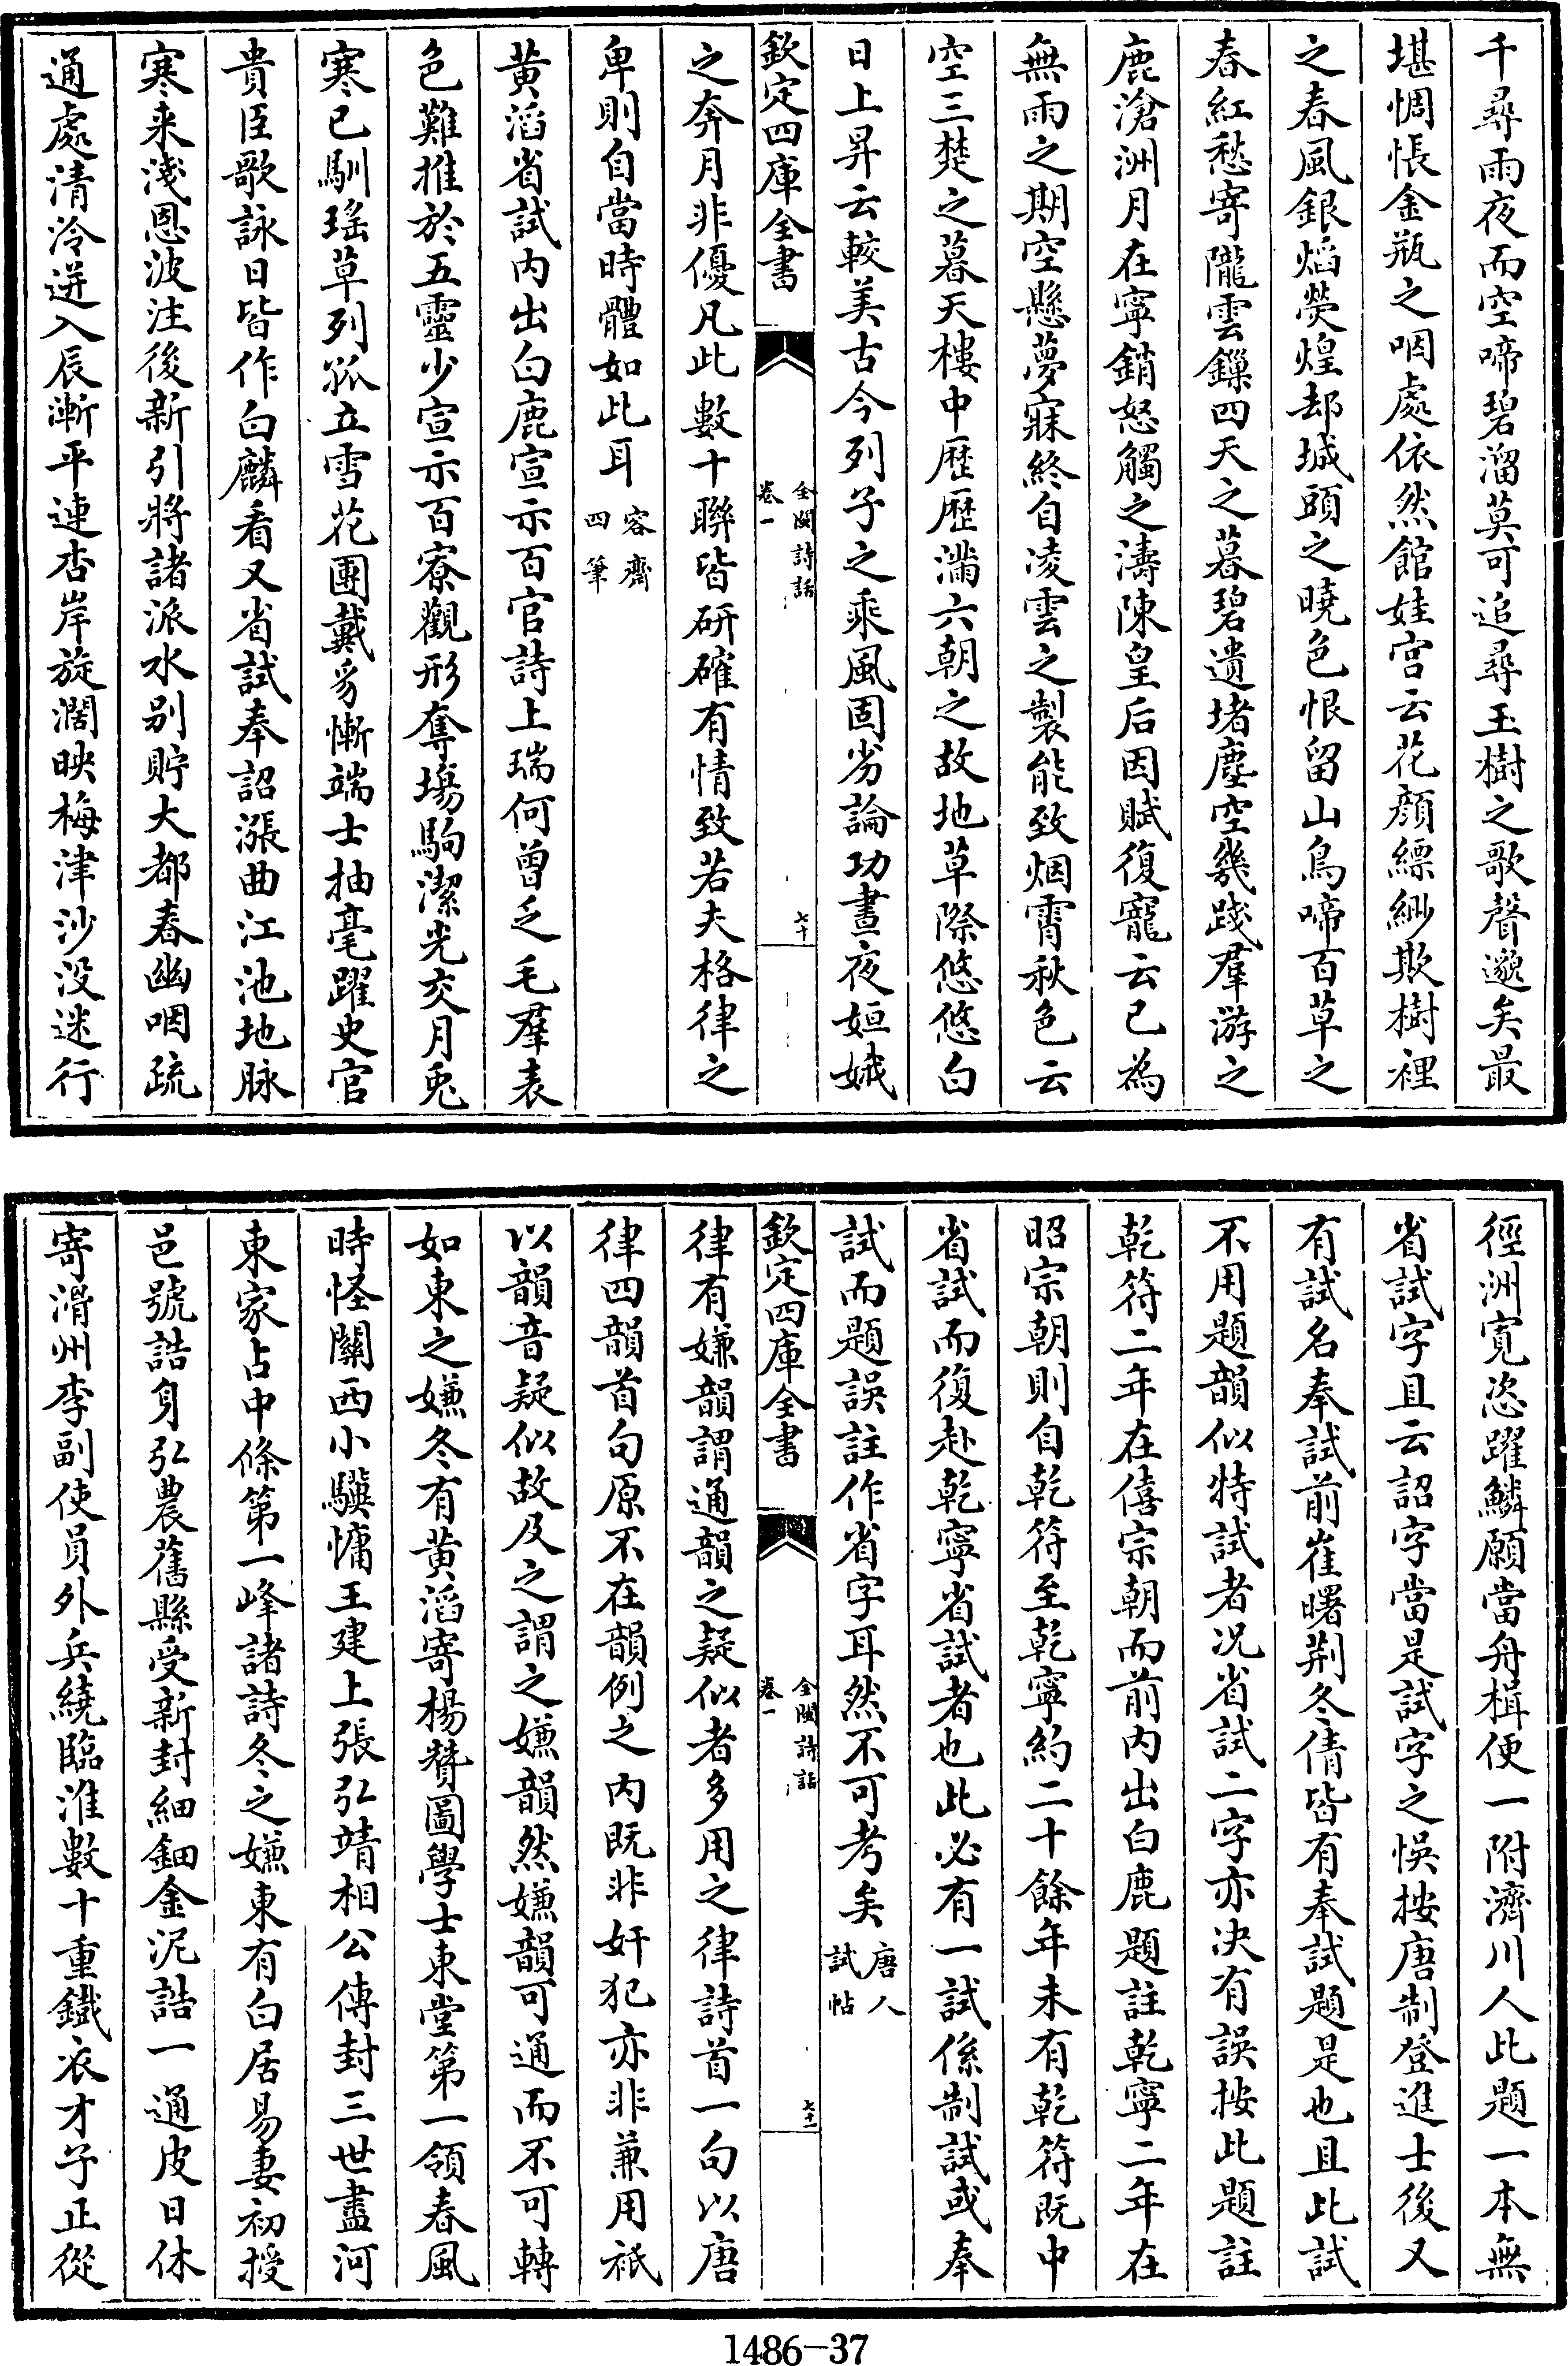 千尋雨夜而空啼碧溜莫可追尋玉樹之歌聲邈矣最
堪惆悵金瓶之咽處依然館娃宮云花顔縹緲欺樹裡
之春風銀焰熒煌却城頭之曉色恨留山鳥啼百草之
春紅愁寄隴雲鏁四天之暮碧遺堵塵空幾踐羣游之
鹿滄洲月在寧銷怒觸之濤陳皇后因賦復寵云已為
無雨之期空懸夢寐終自凌雲之製能致烟霄秋色云
空三楚之暮天樓中歴歴滿六朝之故地草際悠悠白
日上昇云較美古今列子之乘風固劣論功晝夜姮娥
欽定四庫全書
全閩詩話
卷一
七十
之奔月非優凡此數十聯皆研確有情致若夫格律之
卑則自當時體如此耳容齋四筆
黄滔省試内出白鹿宣示百官詩上瑞何曾乏毛羣表
色難推於五靈少宣示百寮觀形奪場駒潔光交月兎
寒已馴瑤草列孤立雪花團戴豸慚端士抽毫躍史官
貴臣歌詠日皆作白麟看又省試奉詔漲曲江池地脉
寒来淺恩波注後新引將諸派水别貯大都春幽咽疏
通處清泠迸入辰漸平連杏岸旋濶映梅津沙没迷行
徑洲寛恣躍鱗願當舟楫便一附濟川人此題一本無
省試字且云詔字當是試字之悞按唐制登進士後又
有試名奉試前崔曙荆冬倩皆有奉試題是也且此試
不用題韻似特試者况省試二字亦决有誤按此題註
乾符二年在僖宗朝而前内出白鹿題註乾寧二年在
昭宗朝則自乾符至乾寧約二十餘年未有乾符既中
省試而復赴乾寧省試者也此必有一試係制試或奉
試而題誤註作省字耳然不可考矣唐人試帖
欽定四庫全書
全閩詩話
卷一
七十一
律有嫌韻謂通韻之疑似者多用之律詩首一句以唐
律四韻首句原不在韻例之内既非奸犯亦非兼用祇
以韻音疑似故及之謂之嫌韻然嫌韻可通而不可轉
如東之嫌冬有黄滔寄楊贊圖學士東堂第一領春風
時怪關西小驥慵王建上張弘靖相公傳封三世盡河
東家占中條第一峰諸詩冬之嫌東有白居易妻初授
邑號誥身弘農舊縣受新封細鈿金泥誥一通皮日休
寄滑州李副使員外兵繞臨淮數十重鐵衣才子正從
1486-37